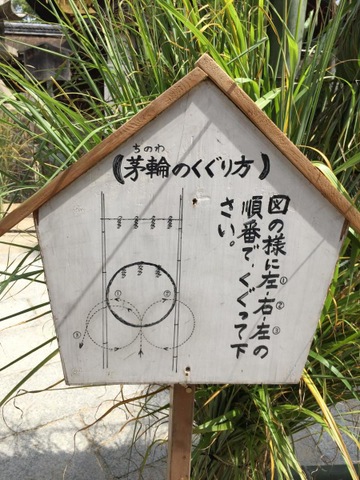 ちのわ
《茅輪のくぐり方》
図の様に左・右・左の
① ② ③
順番で、くぐって下
さい。
① ②
③